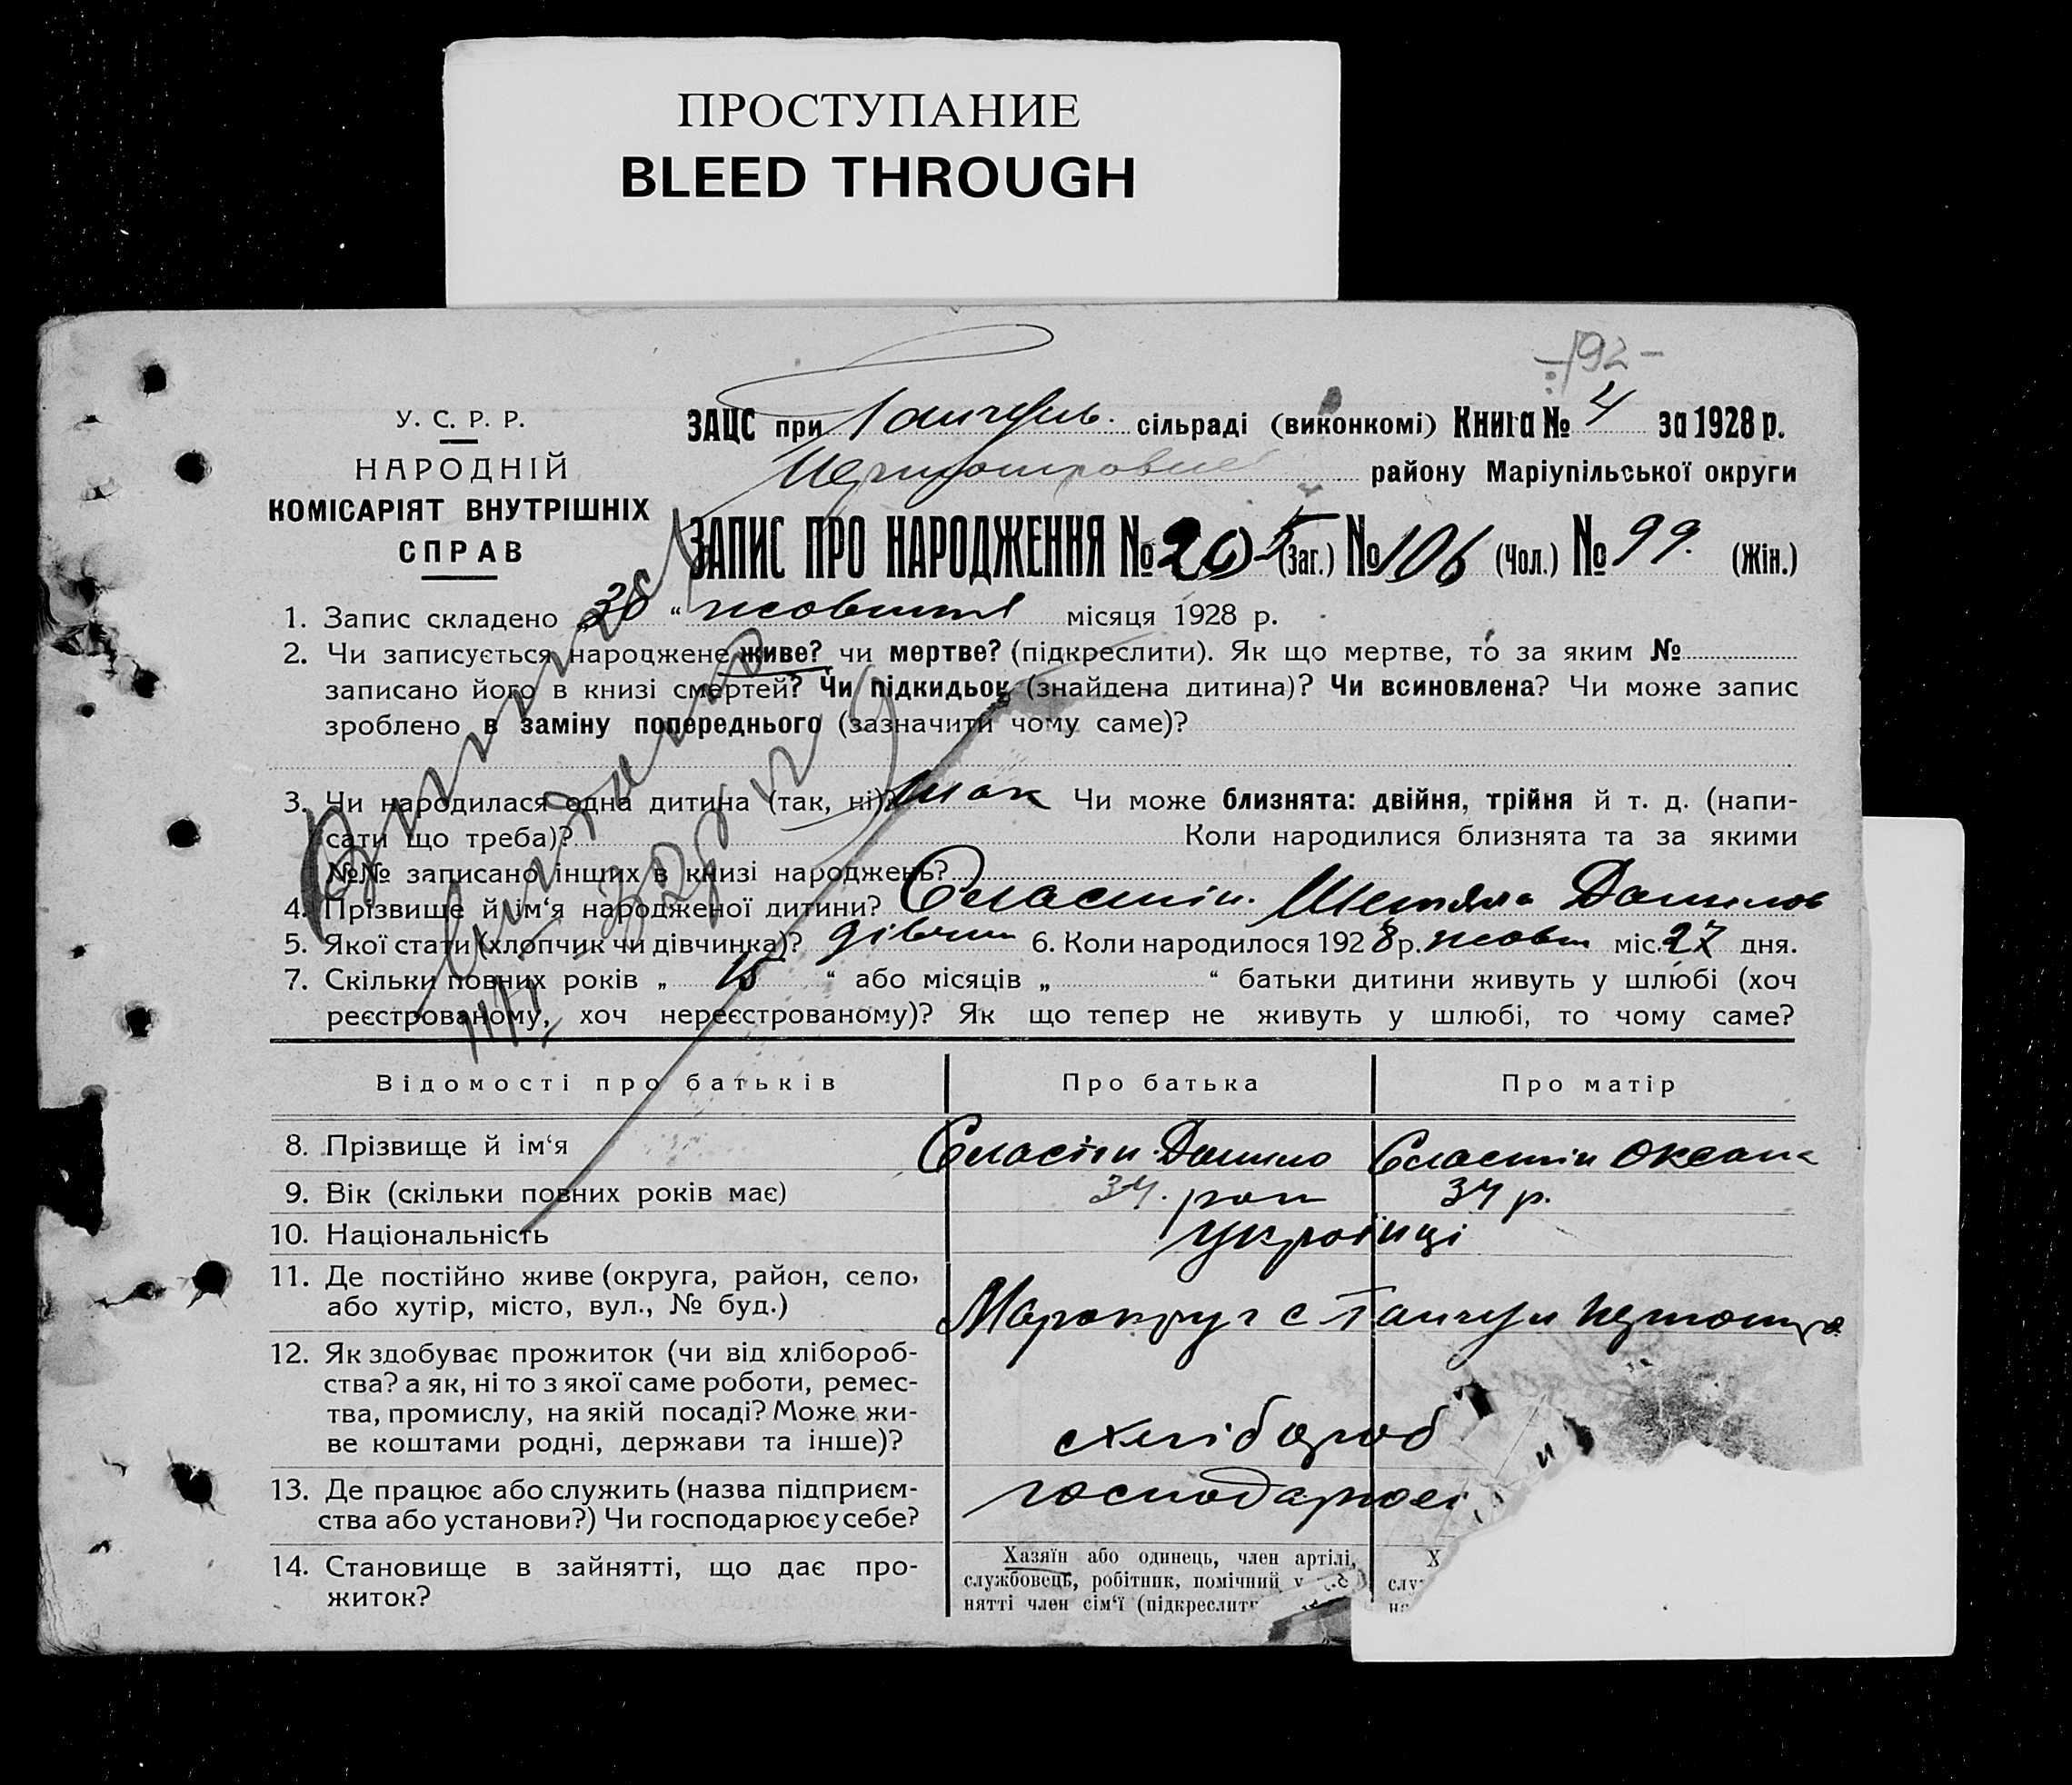 ПРОСТУПАНИЕ
BLEED THROUGH
-192-
У. С. Р. Р.
НАРОДНІЙ
КОМІСАРІЯТ ВНУТРІШНІХ
СПРАВ
ЗАЦС при сільраді (виконкомі) Книга № 4 за 1928 р.
району Маріупільської округи
ЗАПИС ПРО НАРОДЖЕННЯ № 205 (Заг.) № 106 (Чол.) № 99. (Жін.)
1. Запис складено „30“ жовтня місяця 1928 р.
2. Чи записується народжене живе? чи мертве? (підкреслити). Як що мертве, то за яким №
записано його в книзі смертей? Чи підкидьок (знайдена дитина)? Чи всиновлена? Чи може запис
зроблено в заміну попереднього (зазначити чому саме)?
3. Чи народилася одна дитина (так, ні)? так Чи може близнята: двійня, трійня й т. д. (напи-
сати що треба)? Коли народилися близнята та за якими
№№ записано інших в книзі народжень?
4. Прізвище й ім‘я народженої дитини? Сластін.
5. Якої стати (хлопчик чи дівчинка)? дівчин 6. Коли народилося 1928 р. жовт міс. 27 дня.
7. Скільки повних років „15“ або місяців „ “ батьки дитини живуть у шлюбі (хоч
реєстрованому, хоч нереєстрованому)? Як що тепер не живуть у шлюбі, то чому саме?
Відомості про батьків Про батька Про матір
8. Прізвище й ім‘я Сластін Данило Сластін Оксана
9. Вік (скільки повних років має) 34. рок 34 р.
10. Національність українці
11. Де постійно живе (округа, район, село,
або хутір, місто, вул., № буд.) Марокруг с
12. Як здобуває прожиток (чи від хлібороб-
ства? а як, ні то з якої саме роботи, ремес-
тва, промислу, на якій посаді? Може жи-
ве коштами родні, держави та інше)? хлібороб
13. Де працює або служить (назва підприєм-
ства або установи?) Чи господарює у себе?
14. Становище в зайнятті, що дає про-
житок?
Хазяїн або одинець, член артілі,
службовець, робітник, помічний у
нятті член сім‘ї (підкреслити
Х
слу